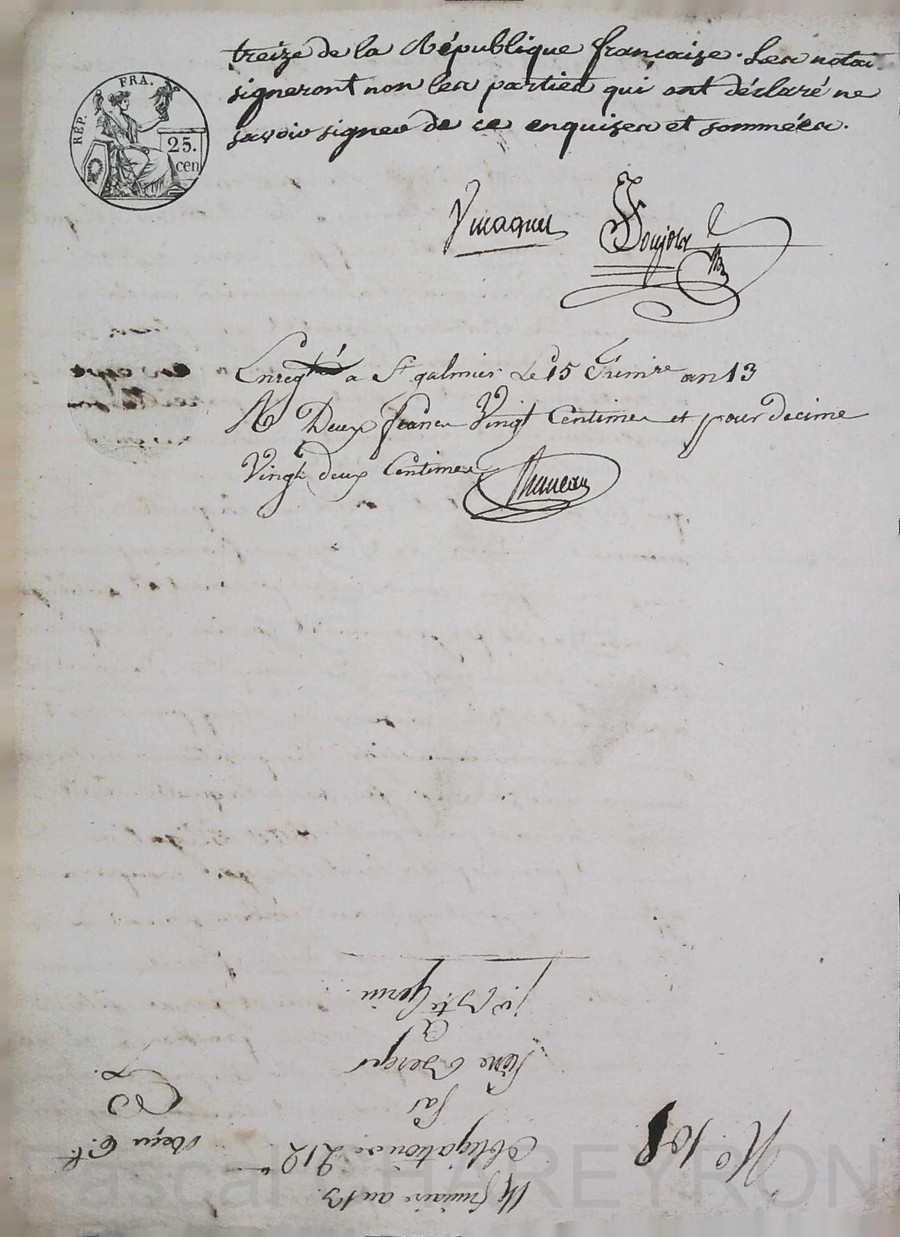 treize de la République française. Les notai.
signeront non les parties qui ont déclaré ne
savoir signer de ce enquises et sommées.
RÉP. FRA.
25.
cen
Enregtré a St galmier Le 15 Frimre an 13
R Deux francs Vingt Centimes et pour decime
Vingt deux Centimes
14 frimaire an 13.
Obligation de 212
Par
Berger
A
Jn Bte
No. 108
Reçu 6.
Pascal CHAREYRON